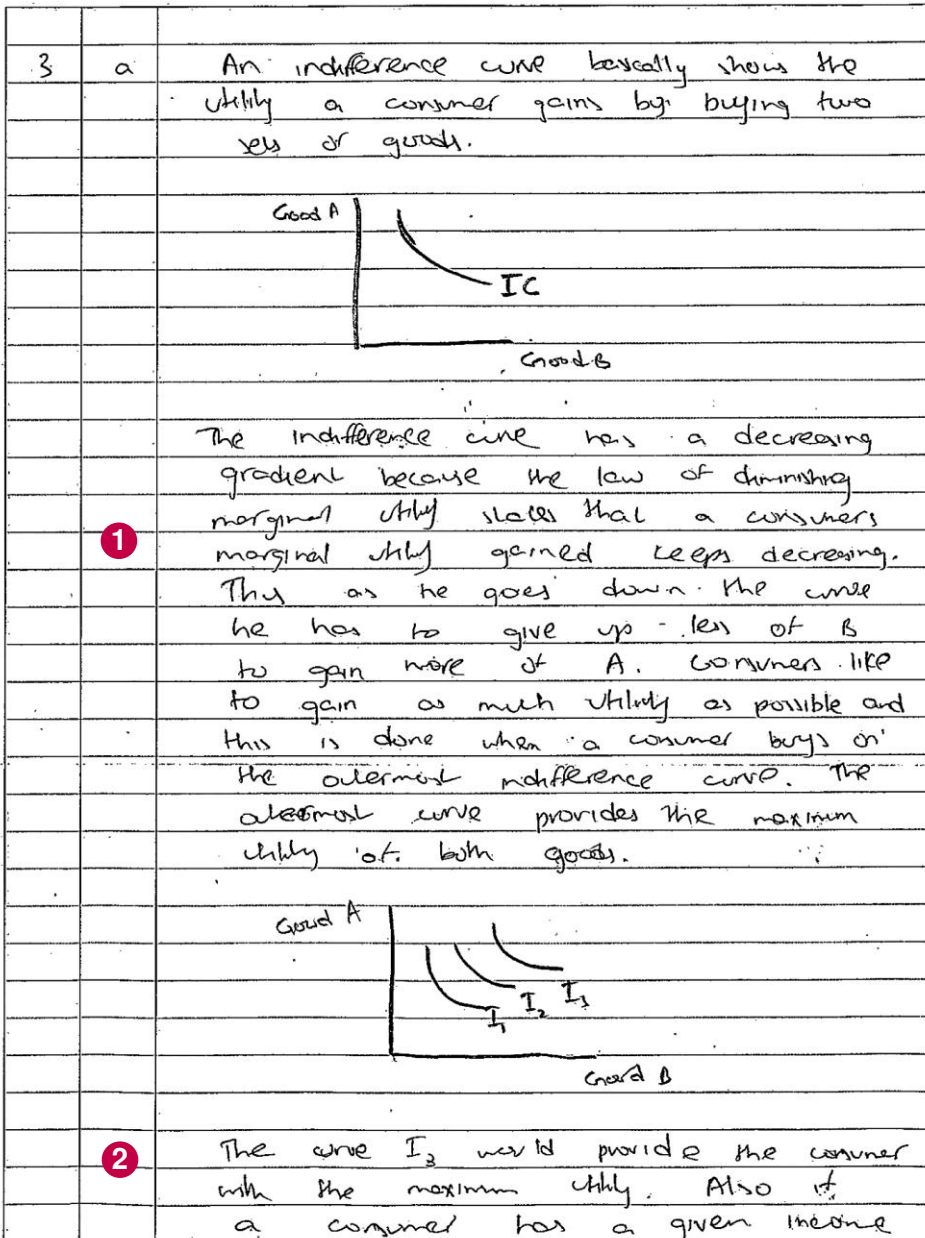 3 a An indifference curve basically shows the
utility a consumer gains by buying two
sets of goods.
Good A
IC
Good B
The indifference curve has a decreasing
gradient because the law of diminishing
marginal utility states that a consumers
1
marginal utility gained keeps decreasing.
Thus as he goes down the curve
he has to give up less of B
to gain more of A. Consumers like
to gain as much utility as possible and
this is done when a consumer buys on
the outermost indifference curve. The
outermost curve provides the maximum
utility of both goods.
Good A
I₁ I₂ I₃
Good B
2 The curve I₃ would provide the consumer
with the maximum utility. Also if
a consumer has a given income